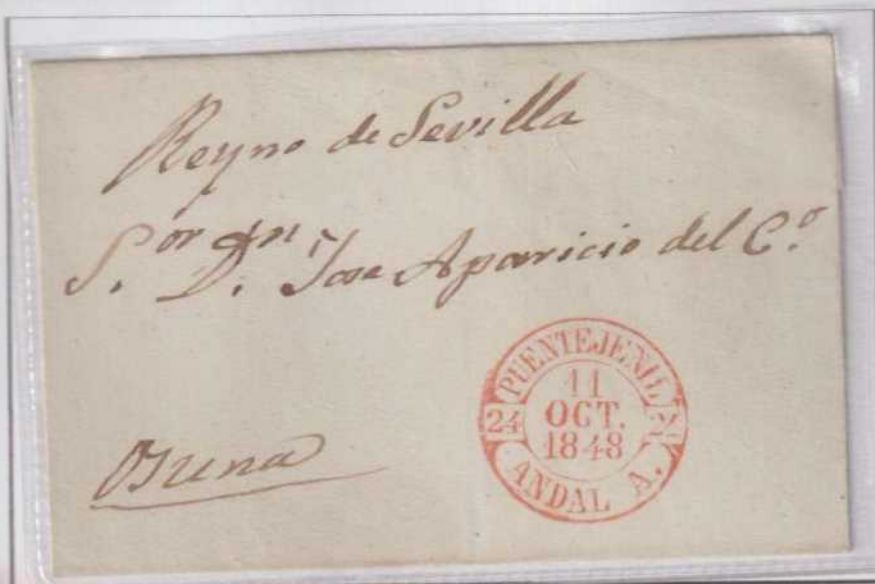 Reyno de Sevilla
S.or Dn. Jose Aparicio del C.o
PUENTEJENIL
11
OCT.
1848
24
ANDAL A.
Osuna